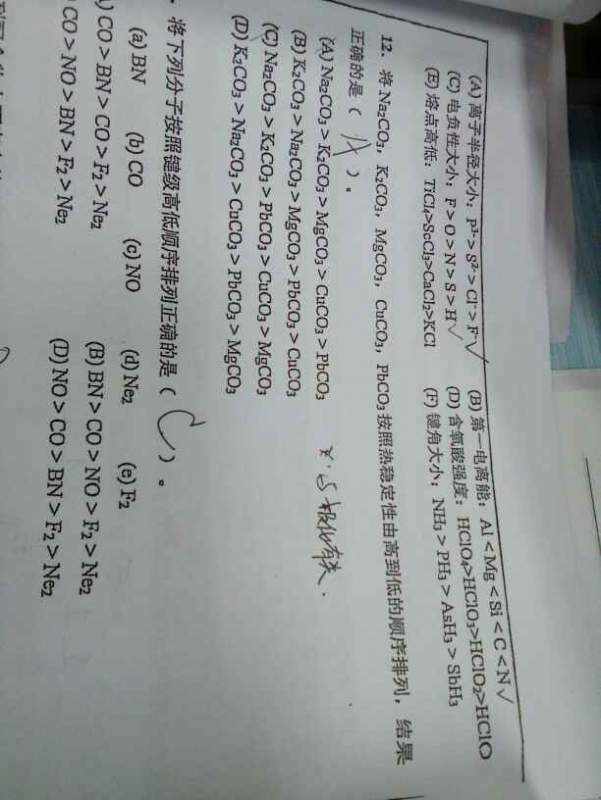 (A) 离子半径大小：P³⁻> S²⁻> Cl⁻> F⁻ √ (B) 第一电离能：Al < Mg < Si < C < N √
(C) 电负性大小：F > O > N > S > H √ (D) 含氧酸强度：HClO₄>HClO₃>HClO₂>HClO
(E) 熔点高低：TiCl₄>ScCl₃>CaCl₂>KCl (F) 键角大小：NH₃ > PH₃ > AsH₃ > SbH₃
12. 将 Na₂CO₃, K₂CO₃, MgCO₃, CuCO₃, PbCO₃ 按照热稳定性由高到低的顺序排列，结果
正确的是（ A ）。
(A) Na₂CO₃ > K₂CO₃ > MgCO₃ > CuCO₃ > PbCO₃
(B) K₂CO₃ > Na₂CO₃ > MgCO₃ > PbCO₃ > CuCO₃
(C) Na₂CO₃ > K₂CO₃ > PbCO₃ > CuCO₃ > MgCO₃
(D) K₂CO₃ > Na₂CO₃ > CuCO₃ > PbCO₃ > MgCO₃
与极化有关.
将下列分子按照键级高低顺序排列正确的是（ C ）。
(a) BN (b) CO (c) NO (d) Ne₂ (e) F₂
) CO > BN > CO > F₂ > Ne₂ (B) BN > CO > NO > F₂ > Ne₂
CO > NO > BN > F₂ > Ne₂ (D) NO > CO > BN > F₂ > Ne₂